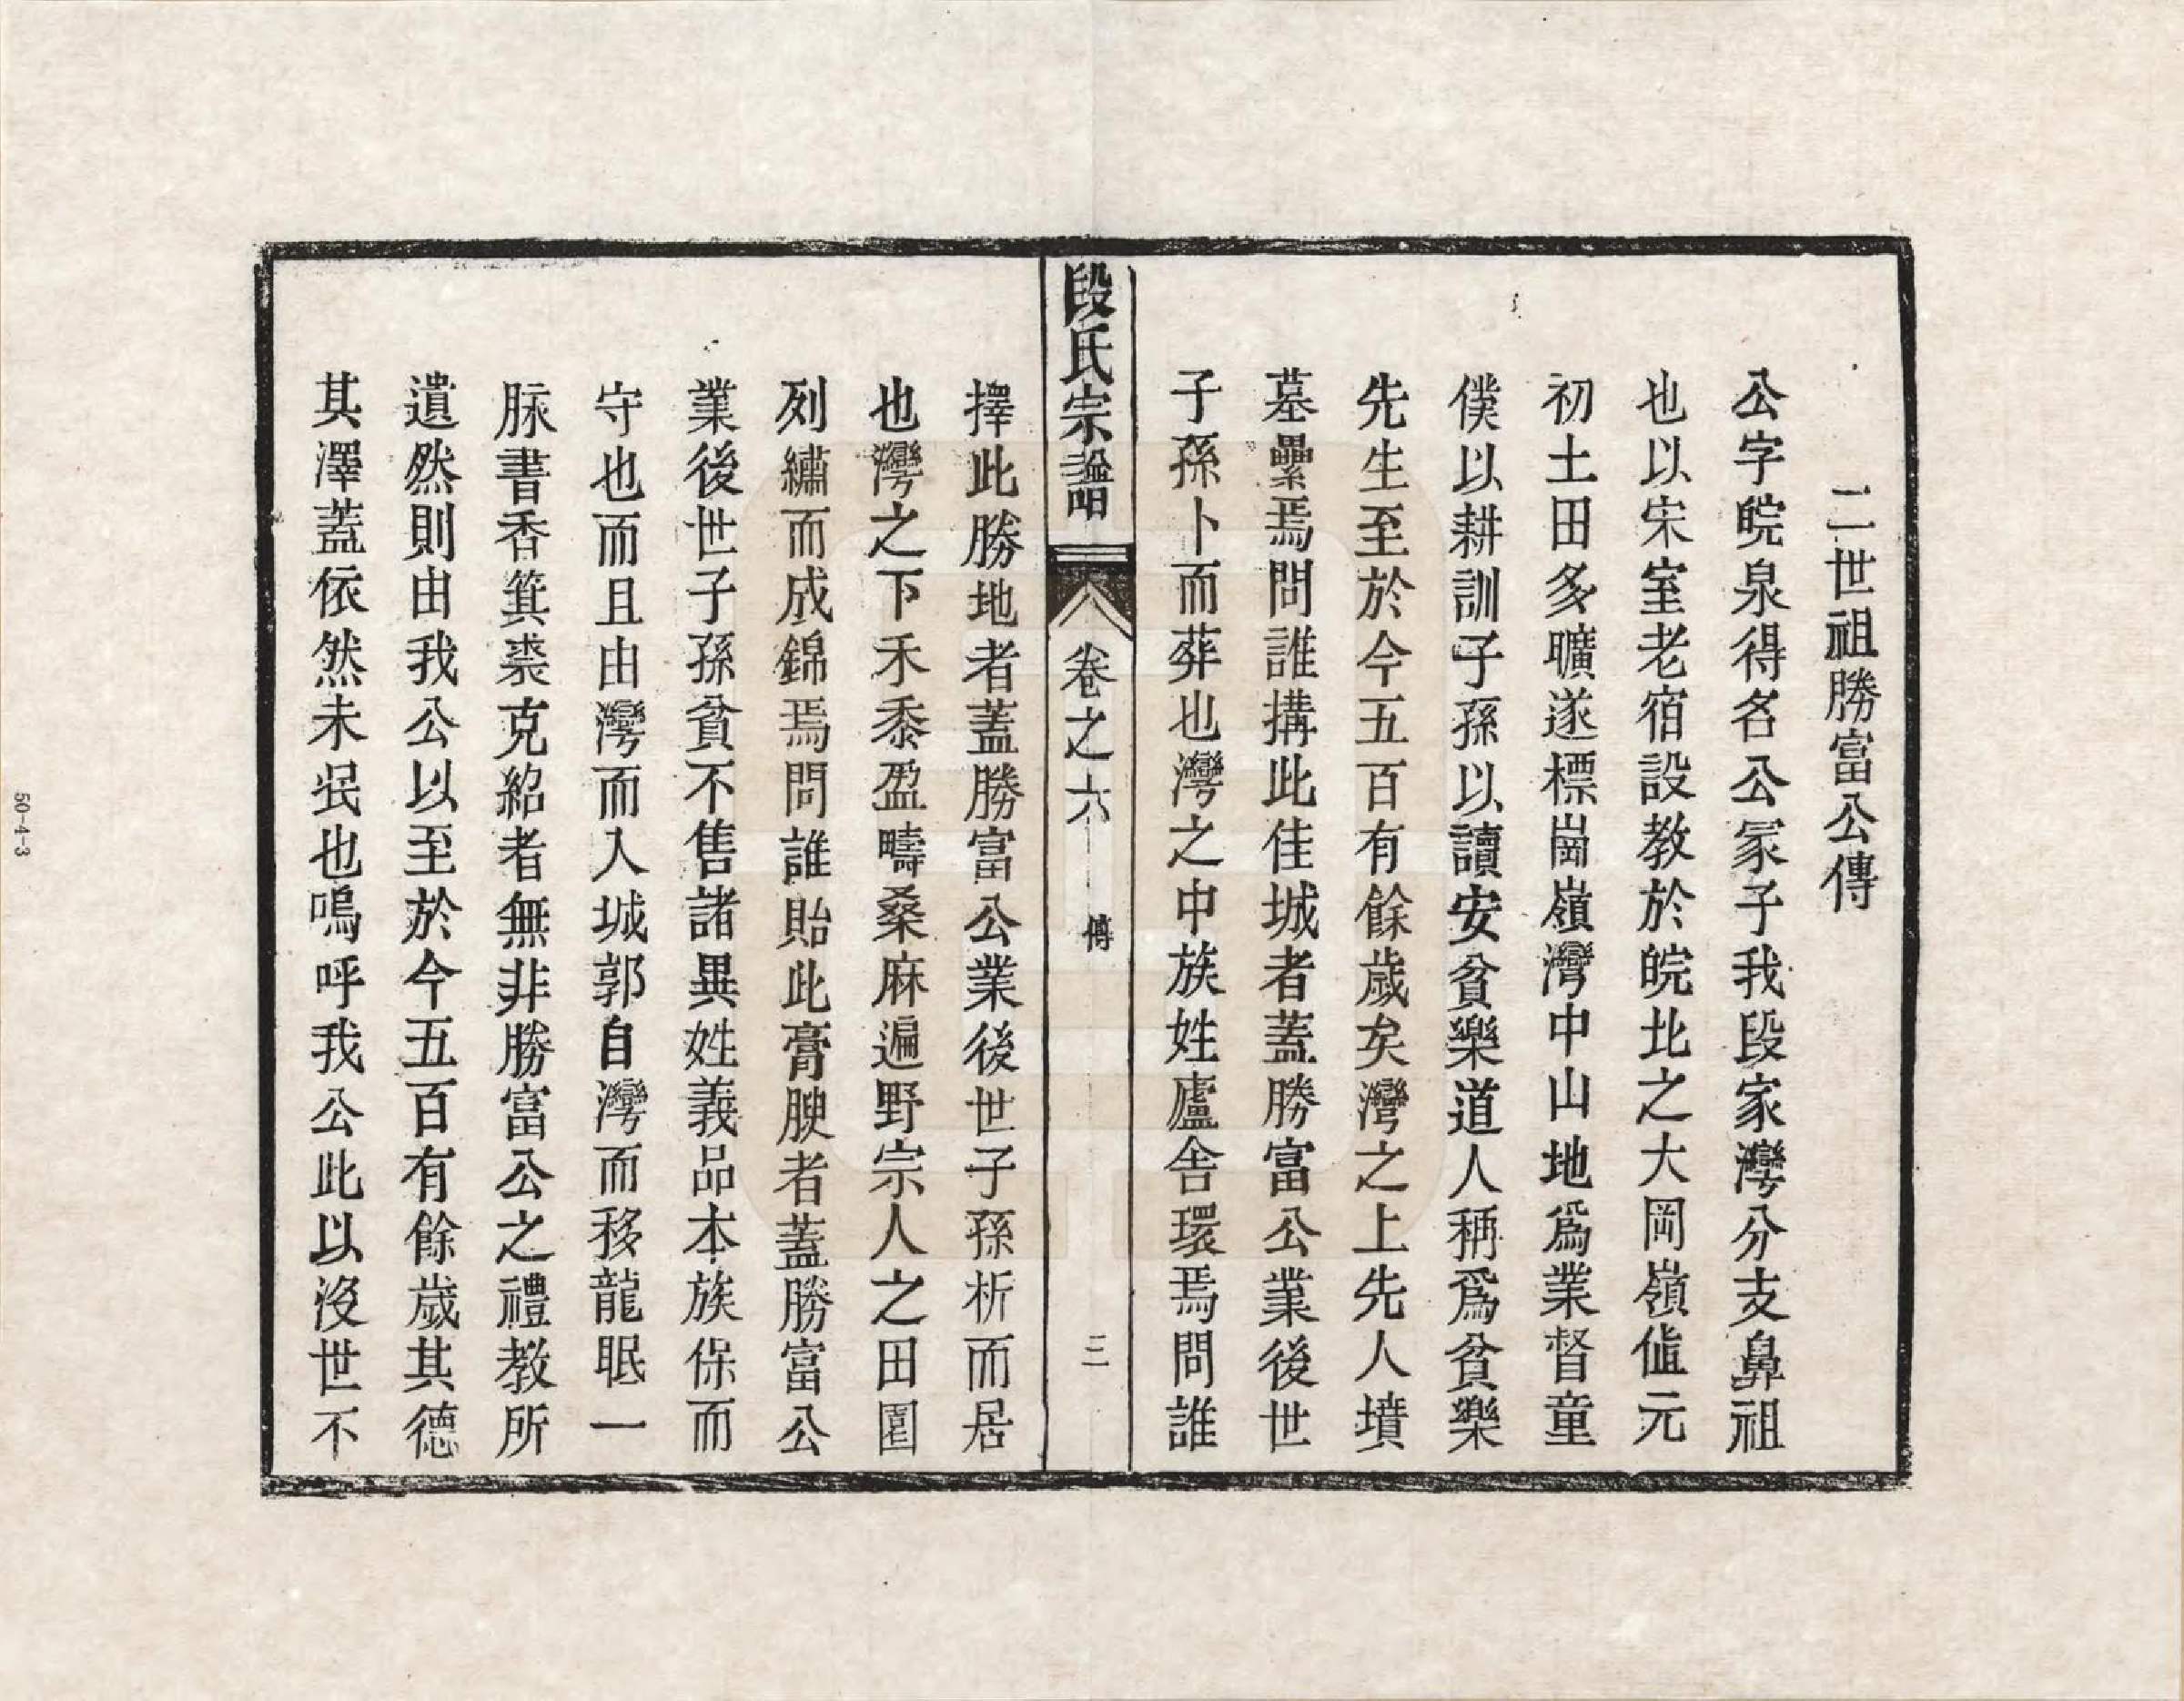 二世祖勝富公傳
公字皖泉得名公冢子我段家灣分支鼻祖
也以宋室老宿設教於皖北之大岡嶺値元
初土田多曠遂標崗嶺灣中山地爲業督童
僕以耕訓子孫以讀安貧樂道人稱爲貧樂
先生至於今五百有餘歲矣灣之上先人墳
墓纍焉問誰搆此佳城者蓋勝富公業後世
子孫卜而葬也灣之中族姓廬舍環焉問誰
段氏宗譜 卷之六 傳 三
擇此勝地者蓋勝富公業後世子孫析而居
也灣之下禾黍盈疇桑麻遍野宗人之田園
列繡而成錦焉問誰貽此膏腴者蓋勝富公
業後世子孫貧不售諸異姓義品本族保而
守也而且由灣而入城郭自灣而移龍眠一
脉書香箕裘克紹者無非勝富公之禮教所
遺然則由我公以至於今五百有餘歲其德
其澤蓋依然未泯也嗚呼我公此以沒世不
50-4-3